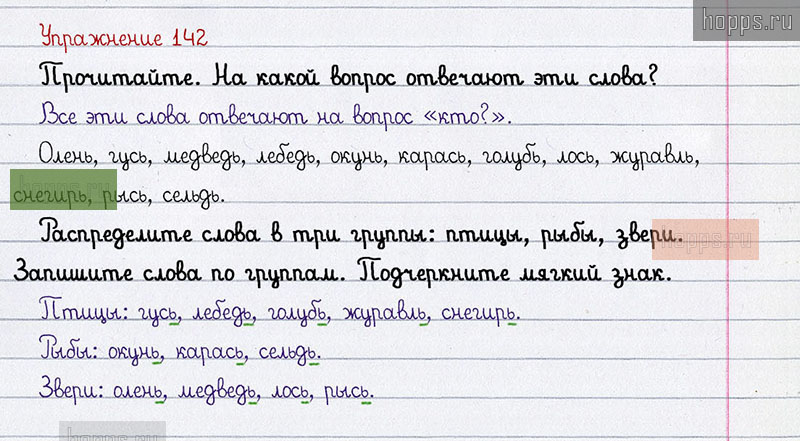 hopps.ru
Упражнение 142
Прочитайте. На какой вопрос отвечают эти слова?
Все эти слова отвечают на вопрос «кто?».
Олень, гусь, медведь, лебедь, окунь, карась, голубь, лось, журавль,
снегирь, рысь, сельдь.
Распределите слова в три группы: птицы, рыбы, звери.
Запишите слова по группам. Подчеркните мягкий знак.
Птицы: гусь, лебедь, голубь, журавль, снегирь.
Рыбы: окунь, карась, сельдь.
Звери: олень, медведь, лось, рысь.